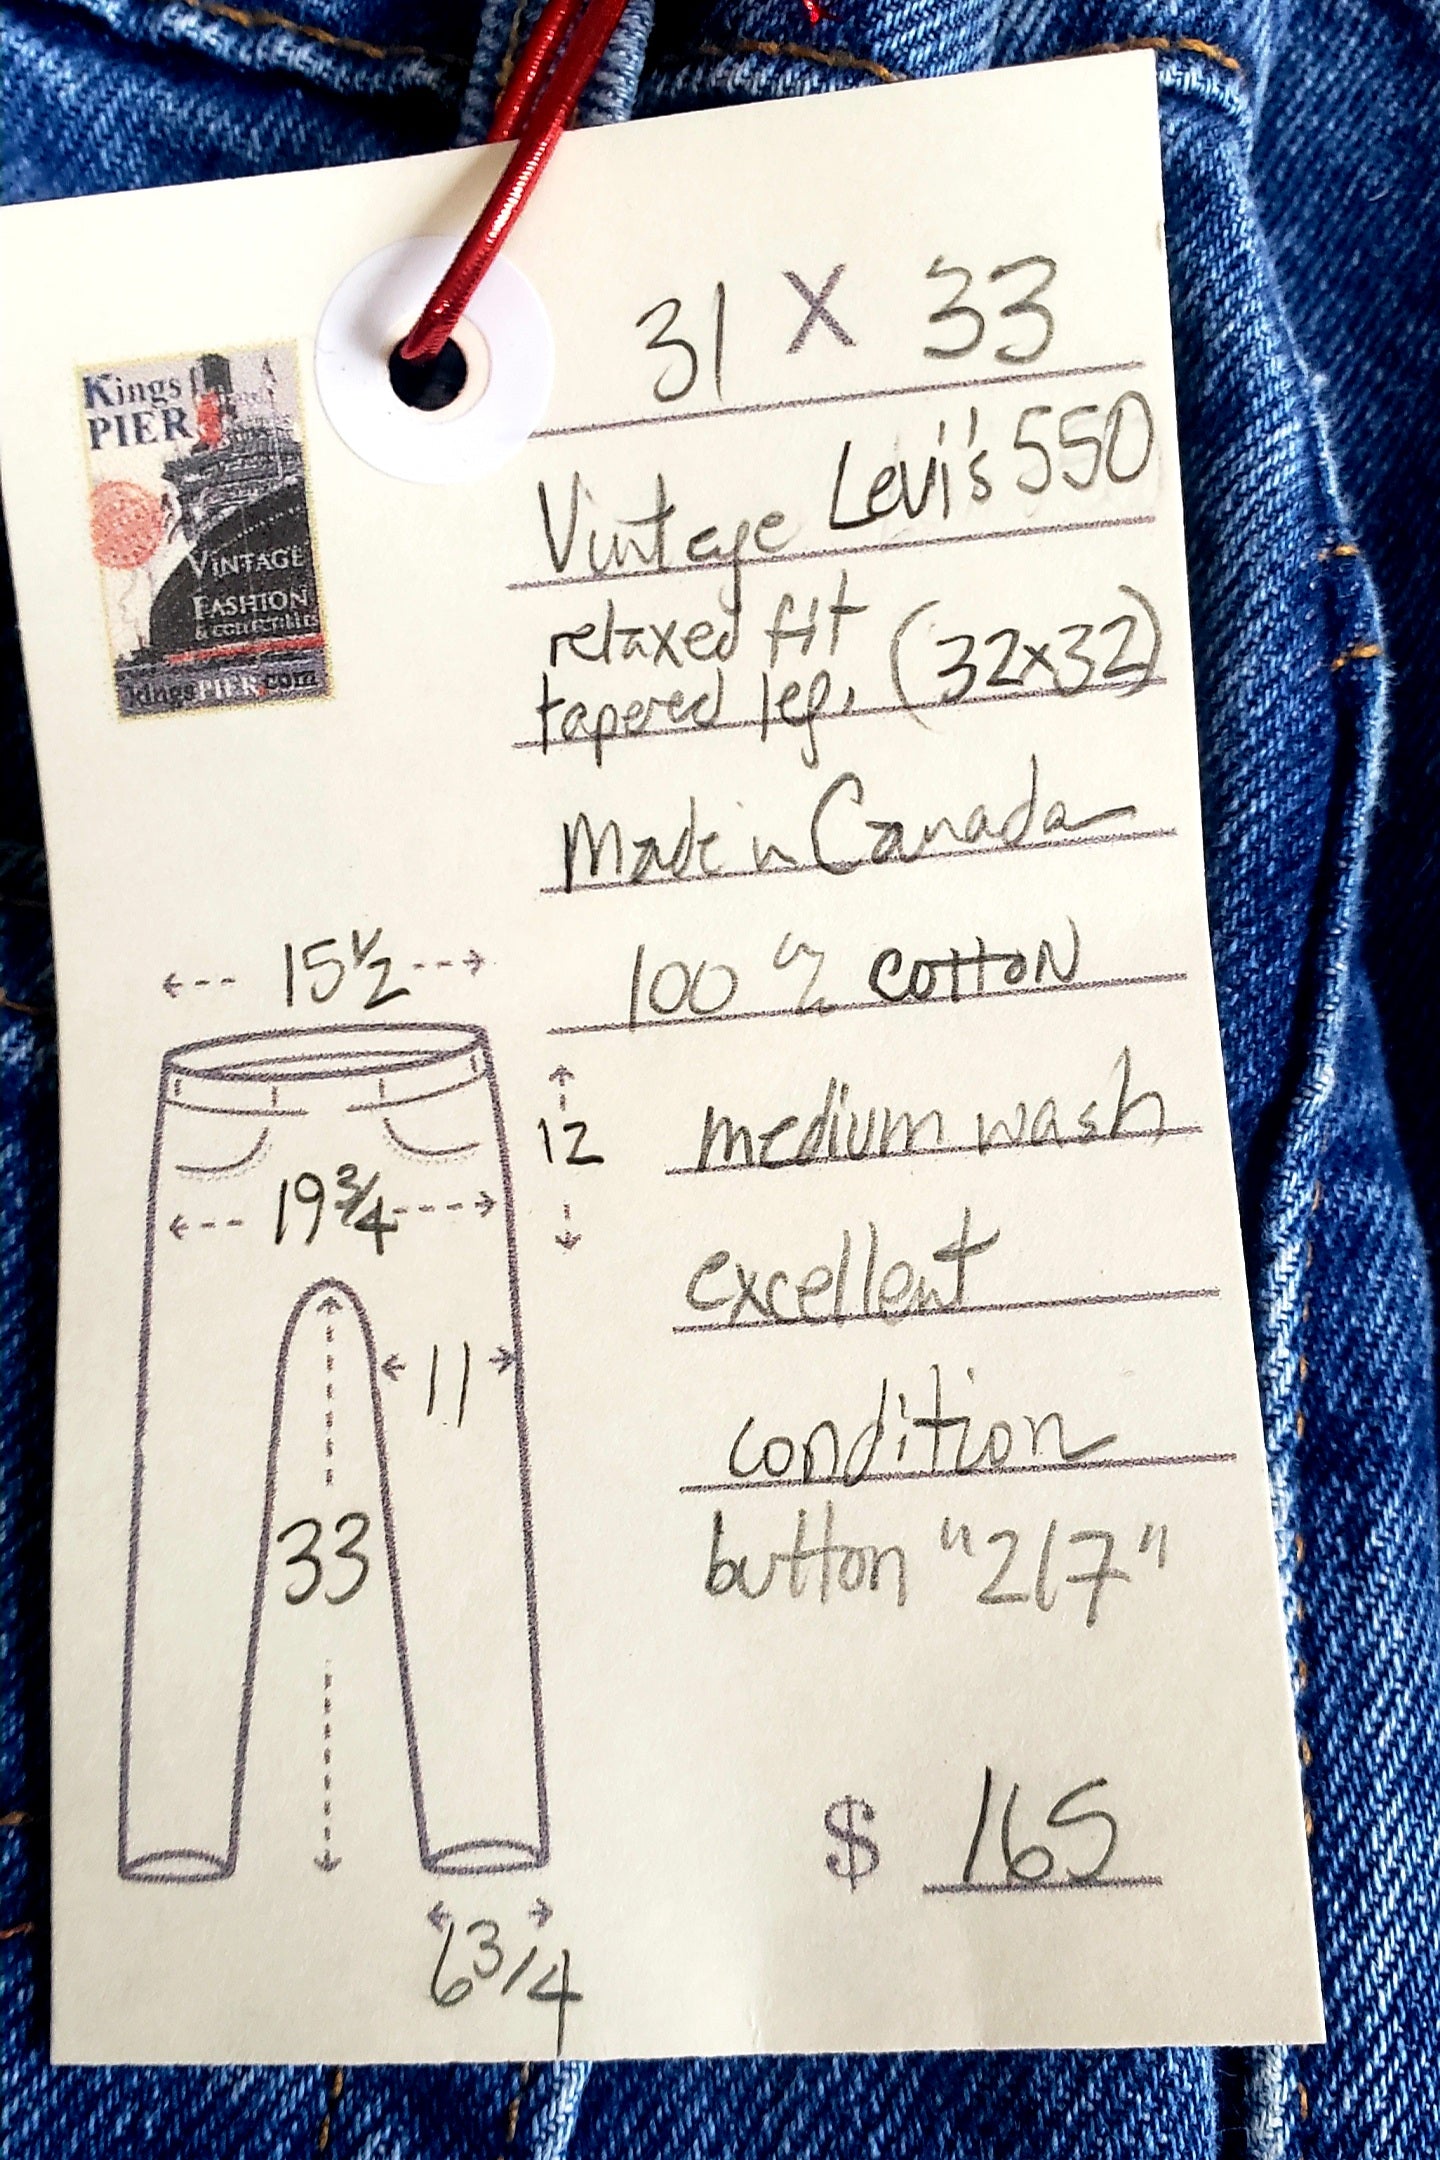 31 X 33
Kings
PIER
VINTAGE
FASHION
& COLLECTIBLES
kingsPIER.com
Vintage Levi's 550
relaxed fit
tapered leg. (32x32)
Made in Canada
100 % COTTON
medium wash
excellent
condition
button "217"
$ 165
15 1/2
12
19 3/4
11
33
6 3/4